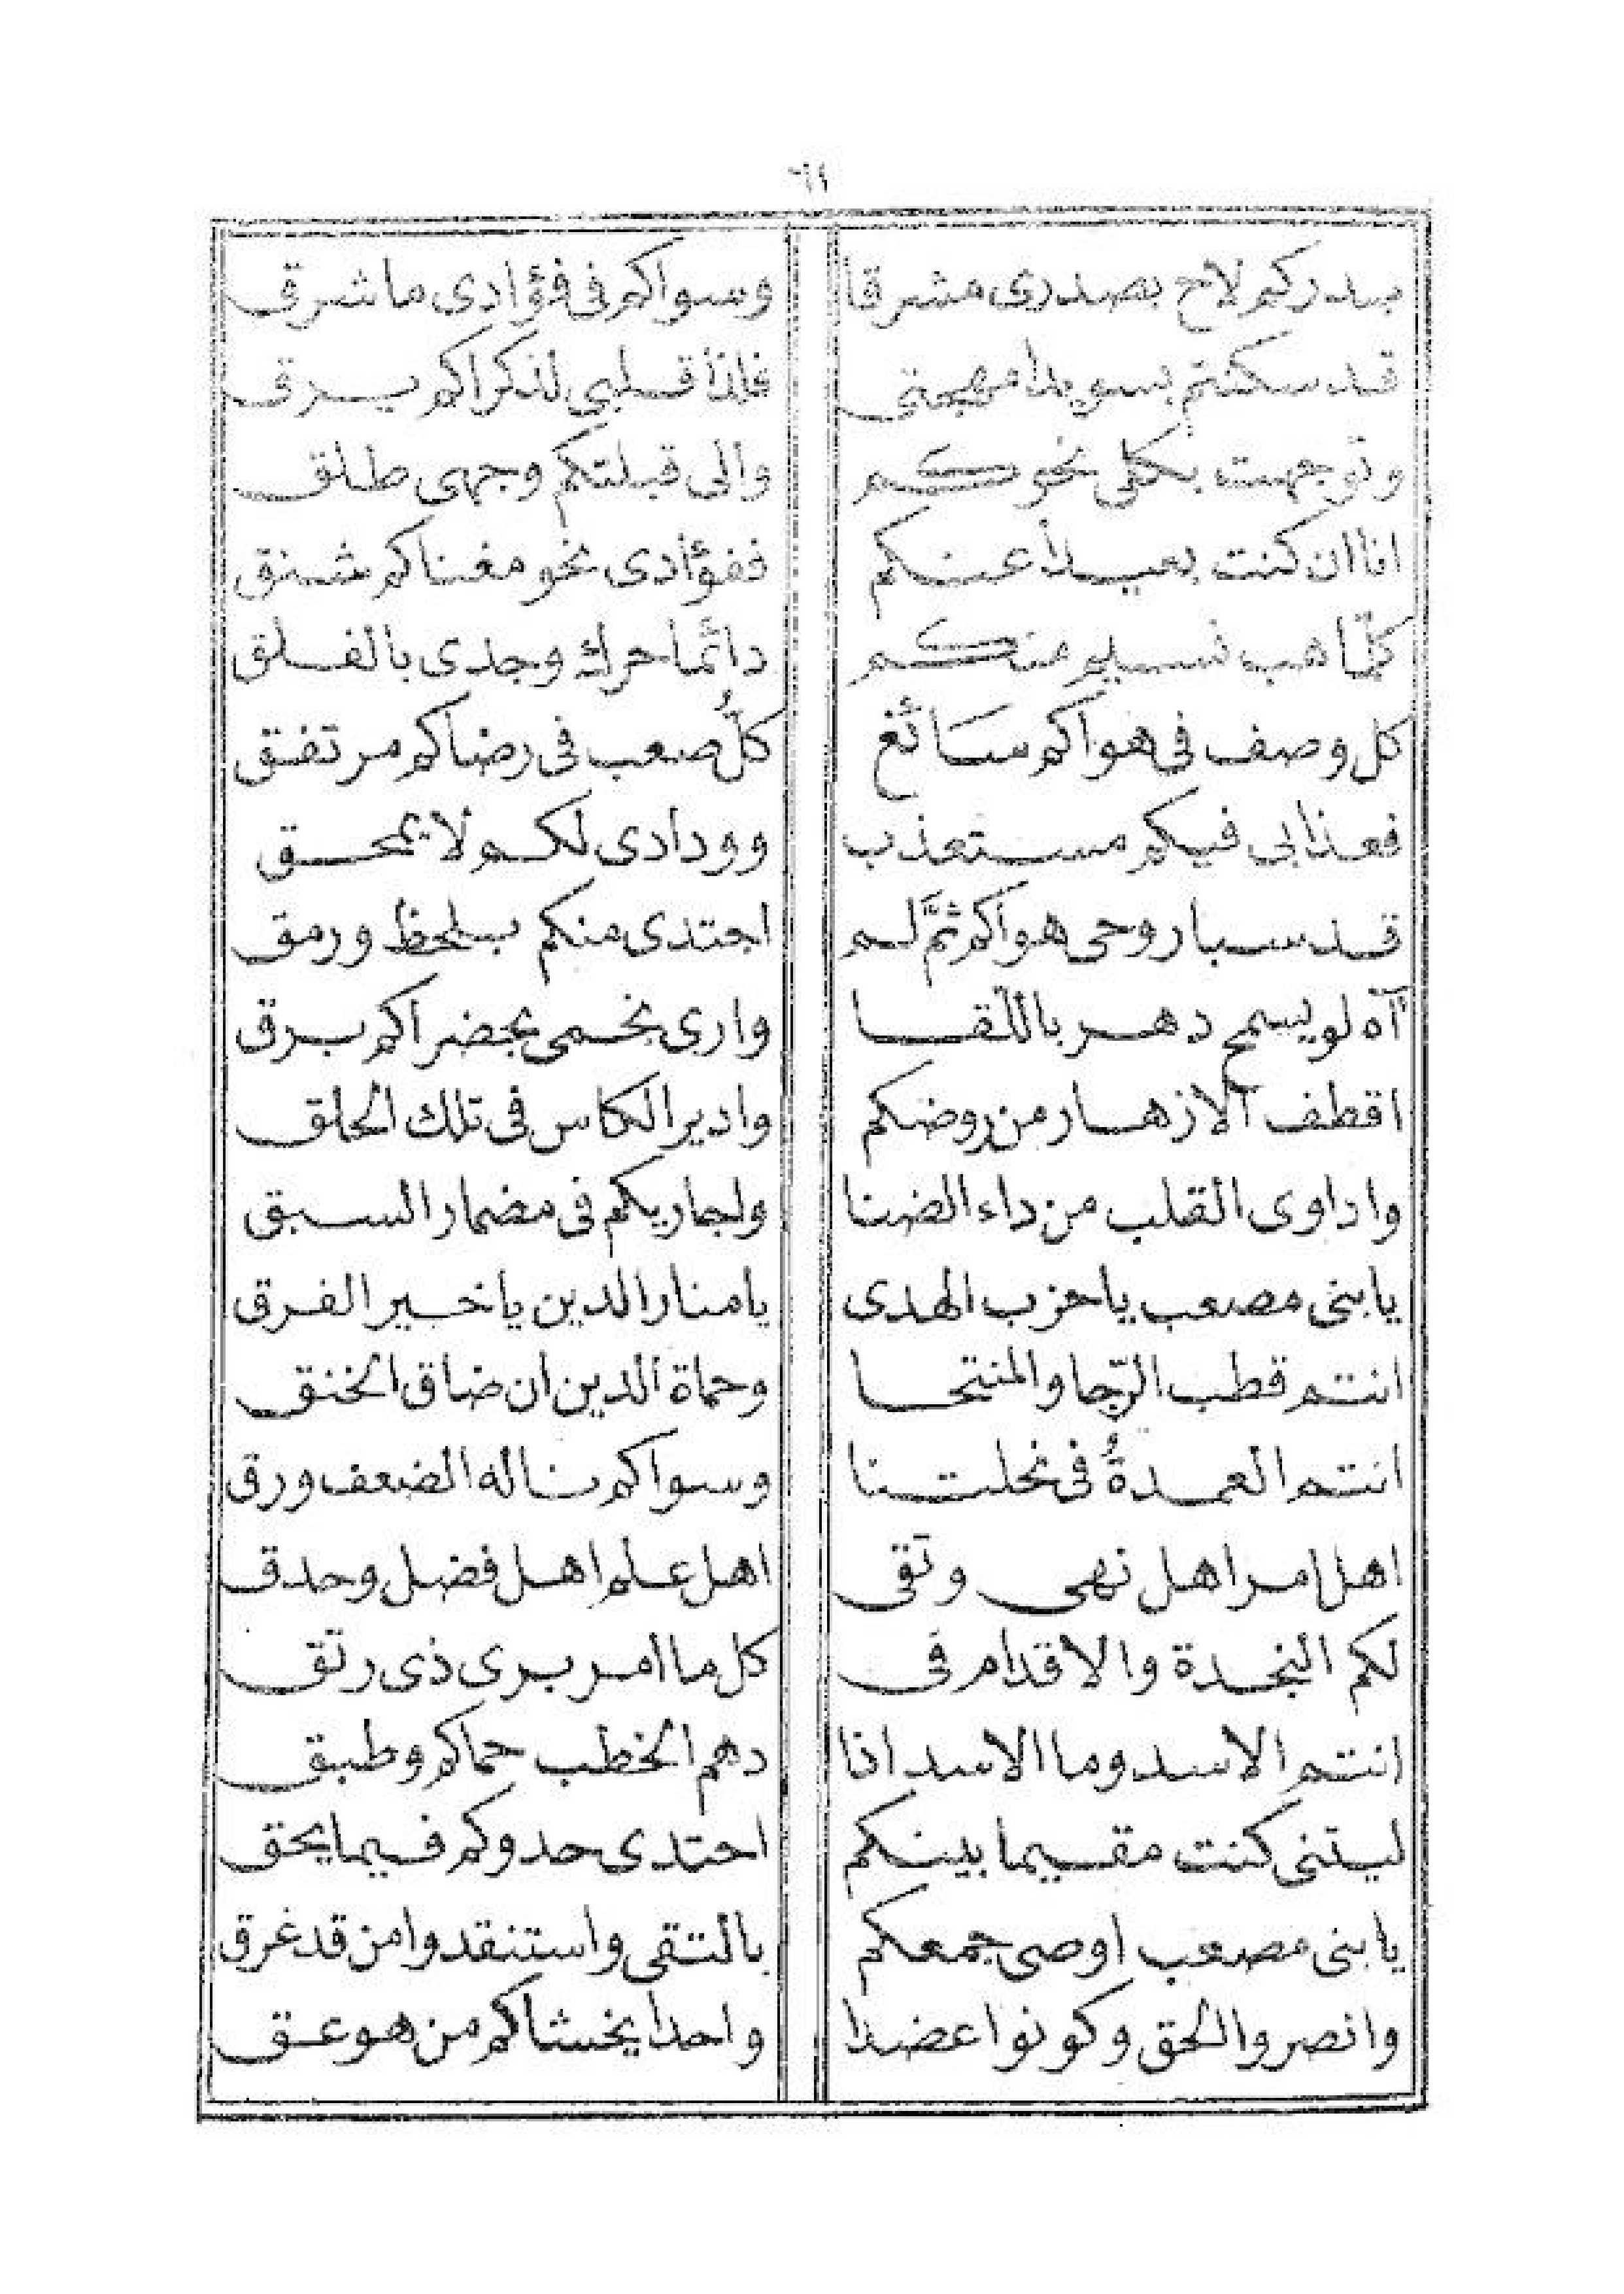 بدركم لاح بصدري مشرقا وسواكم فى فؤادى ما شرق
قد سكنتم بسويدا مهجتى فاذا قلبى لذكراكم يرق
وتوجهت بكلى نحوكم والى قبلتكم وجهى طلق
انا ان كنت بعيداً عنكم ففؤادى نحو مغناكم شنق
كلّما هب نسيم منكم دائمًا حرك وجدى بالفلق
كل وصف فى هواكم سائغ كلُّ صعب فى رضاكم مرتفق
فعذابى فيكم مستعذب وودادى لكم لا يمحق
قد سبا روحى هواكم ثمَّ لم اجتدى منكم بلحظ ورمق
آه لو يسمح دهر باللّقا وارى نجمى بجضراكم برق
اقطف الازهار من روضكم وادير الكاس فى تلك الحلق
واداوى القلب من داء الضنا ولجاريكم فى مضمار السبق
يا بنى مصعب ياحزب الهدى يا منار الدين ياخير الفرق
انتم قطب الرّجا والمنتحا وحماة الدين ان ضاق الخنق
انتم العمدةُ فى نحلتنا وسواكم ناله الضعف ورق
اهل امر اهل نهى وتقى اهل علم اهل فضل وحدق
لكم النجدة والاقدام فى كل ما امر برى ذى رتق
انتم الاسد وما الاسد اذا دهم الخطب حماكم وطبق
ليتنى كنت مقيما بينكم احتدى حدوكم فيما يحق
يا بنى مصعب اوصى جمعكم بالتقى واستنقدوا من قد غرق
وانصروا الحق وكونوا عضدا واحدا يخشاكم من هو عق